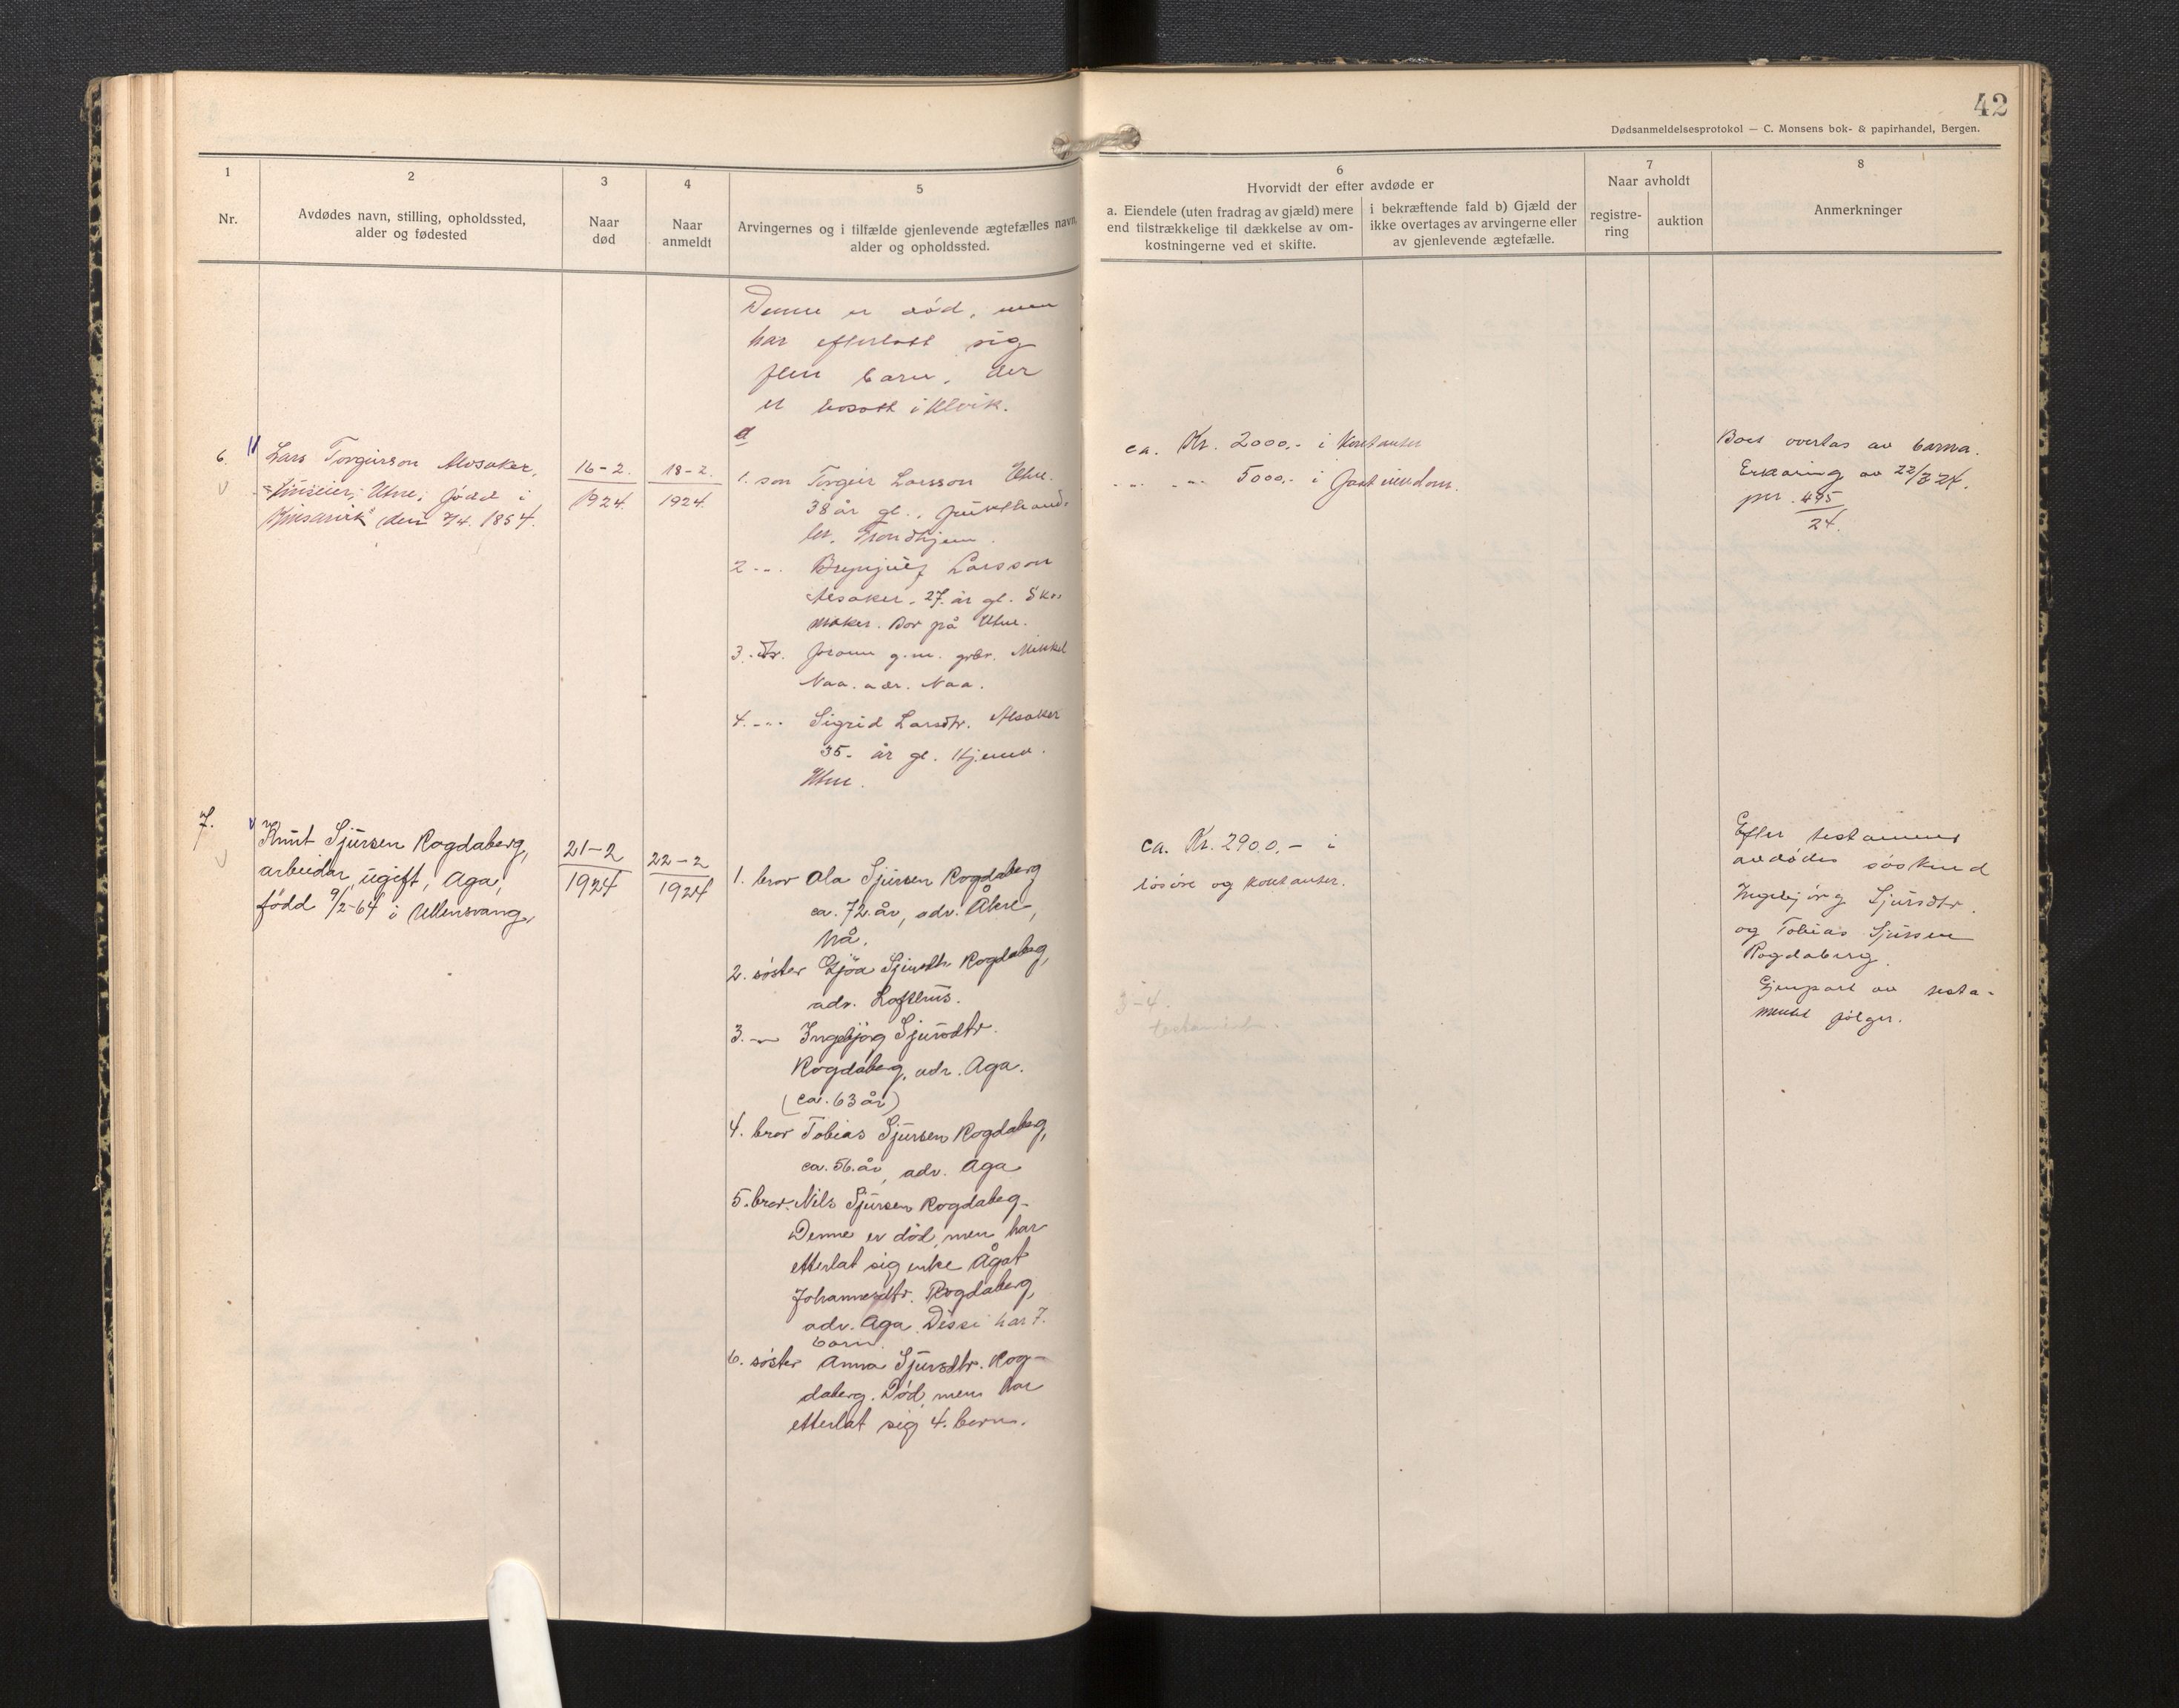 42
Dødsanmeldelsesprotokol — C. Monsens bok- & papirhandel, Bergen.
1
Nr.
2
Avdødes navn, stilling, opholdssted,
alder og fødested
3
Naar
død
4
Naar
anmeldt
5
Arvingernes og i tilfælde gjenlevende ægtefælles navn
alder og opholdssted.
6
Hvorvidt der efter avdøde er
a. Eiendele (uten fradrag av gjæld) mere
end tilstrækkelige til dækkelse av om-
kostningerne ved et skifte.
i bekræftende fald b) Gjæld der
ikke overtages av arvingerne eller
av gjenlevende ægtefælle.
7
Naar avholdt
registre-
ring
auktion
8
Anmerkninger
Denne er død, men
har efterlatt sig
flere barn, der
er bosatt i Ulvik.
6.
Lars Torgeirson Alsaker,
Utne, fødd i
Kinsarvik den 7/4. 1854.
16-2.
1924.
18-2.
1924.
1. son Torgeir Larsson Utne.
38 år gl., frukthand-
ler, Trondhjem.
2 -.- Brynjulf Larsson
Alsaker. 27. år gl. Sko-
maker. Bor på Utne.
3. dtr. Joronn g.m. gbr. Mikkel
Naa. adr. Naa.
4. -.- Sigrid Larsdtr. Alsaker
35. år gl. Hjema.
Utne.
ca. Kr. 2000,- i kontanter
-.- -.- 5000,- i fast eiendom.
Boet overtas av barna.
Erklæring av 22/3 24.
pnr. 495
24.
7.
Knut Sjursen Rogdaberg,
arbeidar, ugift, Aga,
fødd 9/2-64 i Ullensvang.
21-2
1924
22-2
1924
1. bror Ola Sjursen Rogdaberg
ca. 72 år, adr. Åkre,
Nå.
2. søster Gjøa Sjursdtr. Rogdaberg,
adr. Lofthus.
3. -"- Ingebjørg Sjursdtr.
Rogdaberg, adr. Aga.
(ca. 63 år)
4. bror Tobias Sjursen Rogdaberg,
ca. 56. år, adr. Aga
5. bror. Nils Sjursen Rogdaberg.
Denne er død, men har
etterlat sig enke Ågat
Johannesdtr. Rogdaberg,
adr. Aga. Disse har 7.
barn.
6. søster Anna Sjursdtr. Rog-
daberg. Død, men har
etterlat sig 4. born.
ca. Kr. 2900,- i
løsøre og kontanter.
3-4.
testament.
Efter testament
avdødes søskend
Ingebjørg Sjursdtr.
og Tobias Sjursen
Rogdaberg.
Gjenpart av testa-
mentet følger.